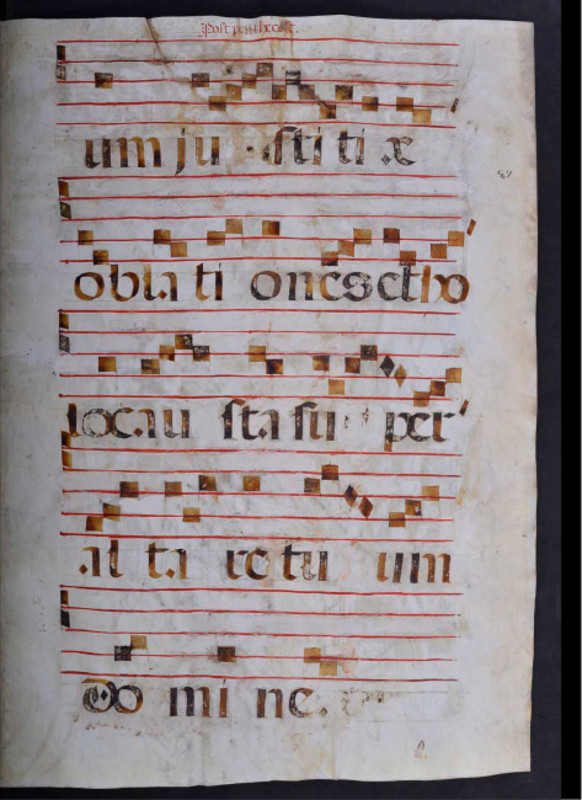 Post pentecost.
um ju stiti æ
oblati ones et ho
locau sta su per
al ta re tu um
Do mi ne.